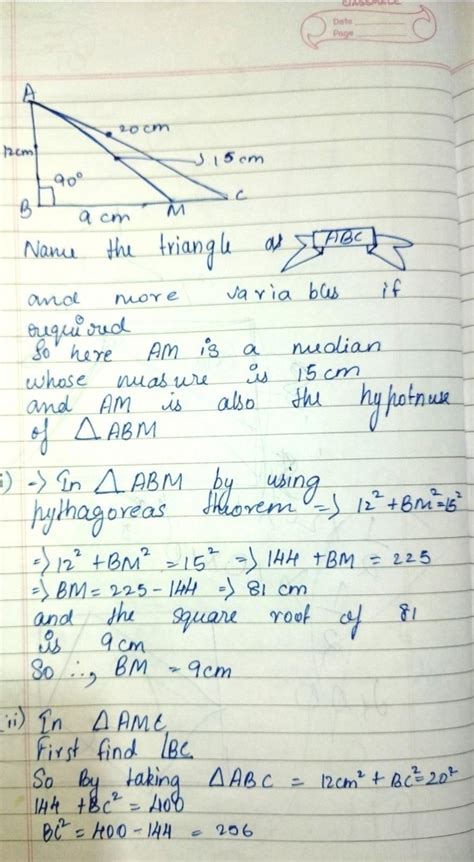 CLASSMATE
Date
Page
A
20 cm
12cm
15 cm
90°
B
9 cm
M
C
Name the triangle as ABC
and more varia bles if
required
So here AM is a median
whose measure is 15 cm
and AM is also the hypotnuse
of △ABM
i) → In △ABM by using
pythagoreas theorem ⇒ 12² + BM² = 15²
⇒ 12² + BM² = 15² ⇒ 144 + BM = 225
⇒ BM = 225 - 144 ⇒ 81 cm
and the square root of 81
is 9cm
So ∴, BM = 9cm
ii) In △AMC,
First find BC
So By taking △ABC = 12cm² + BC² = 20²
144 + BC² = 400
BC² = 400 - 144 = 256